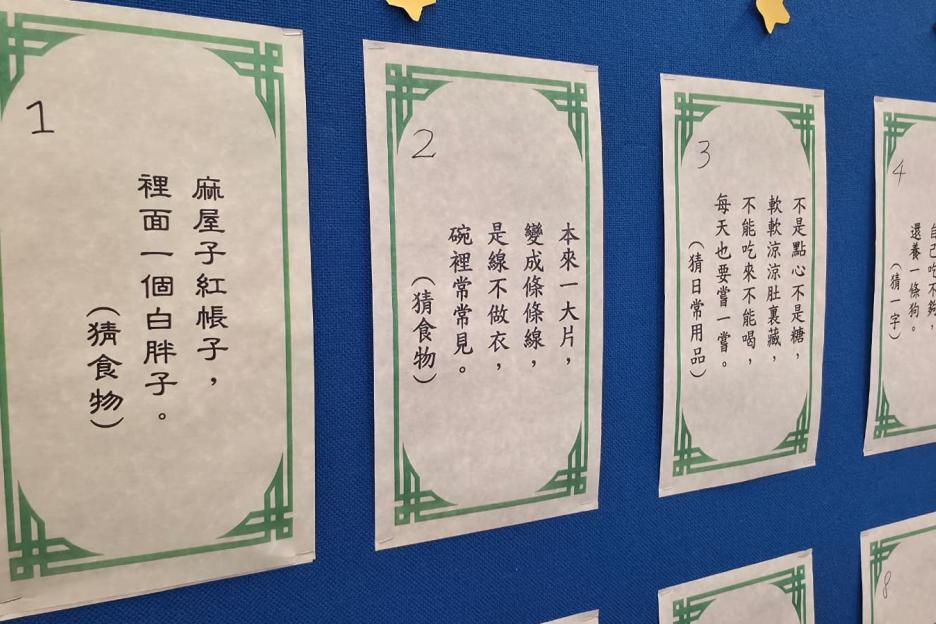 1
麻屋子紅帳子，
裡面一個白胖子。
（猜食物）
2
本來一大片，
變成條條線，
是線不做衣，
碗裡常常見。
（猜食物）
3
不是點心不是糖，
軟軟涼涼肚裏藏，
不能吃來不能喝，
每天也要嘗一嘗。
（猜日常用品）
4
自己吃不夠，
還養一條狗。
（猜一字）
8